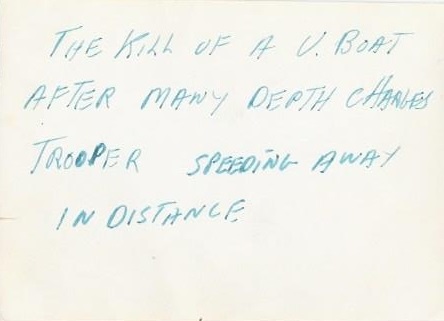 THE KILL OF A U. BOAT
AFTER MANY DEPTH CHARGES
TROOPER SPEEDING AWAY
IN DISTANCE